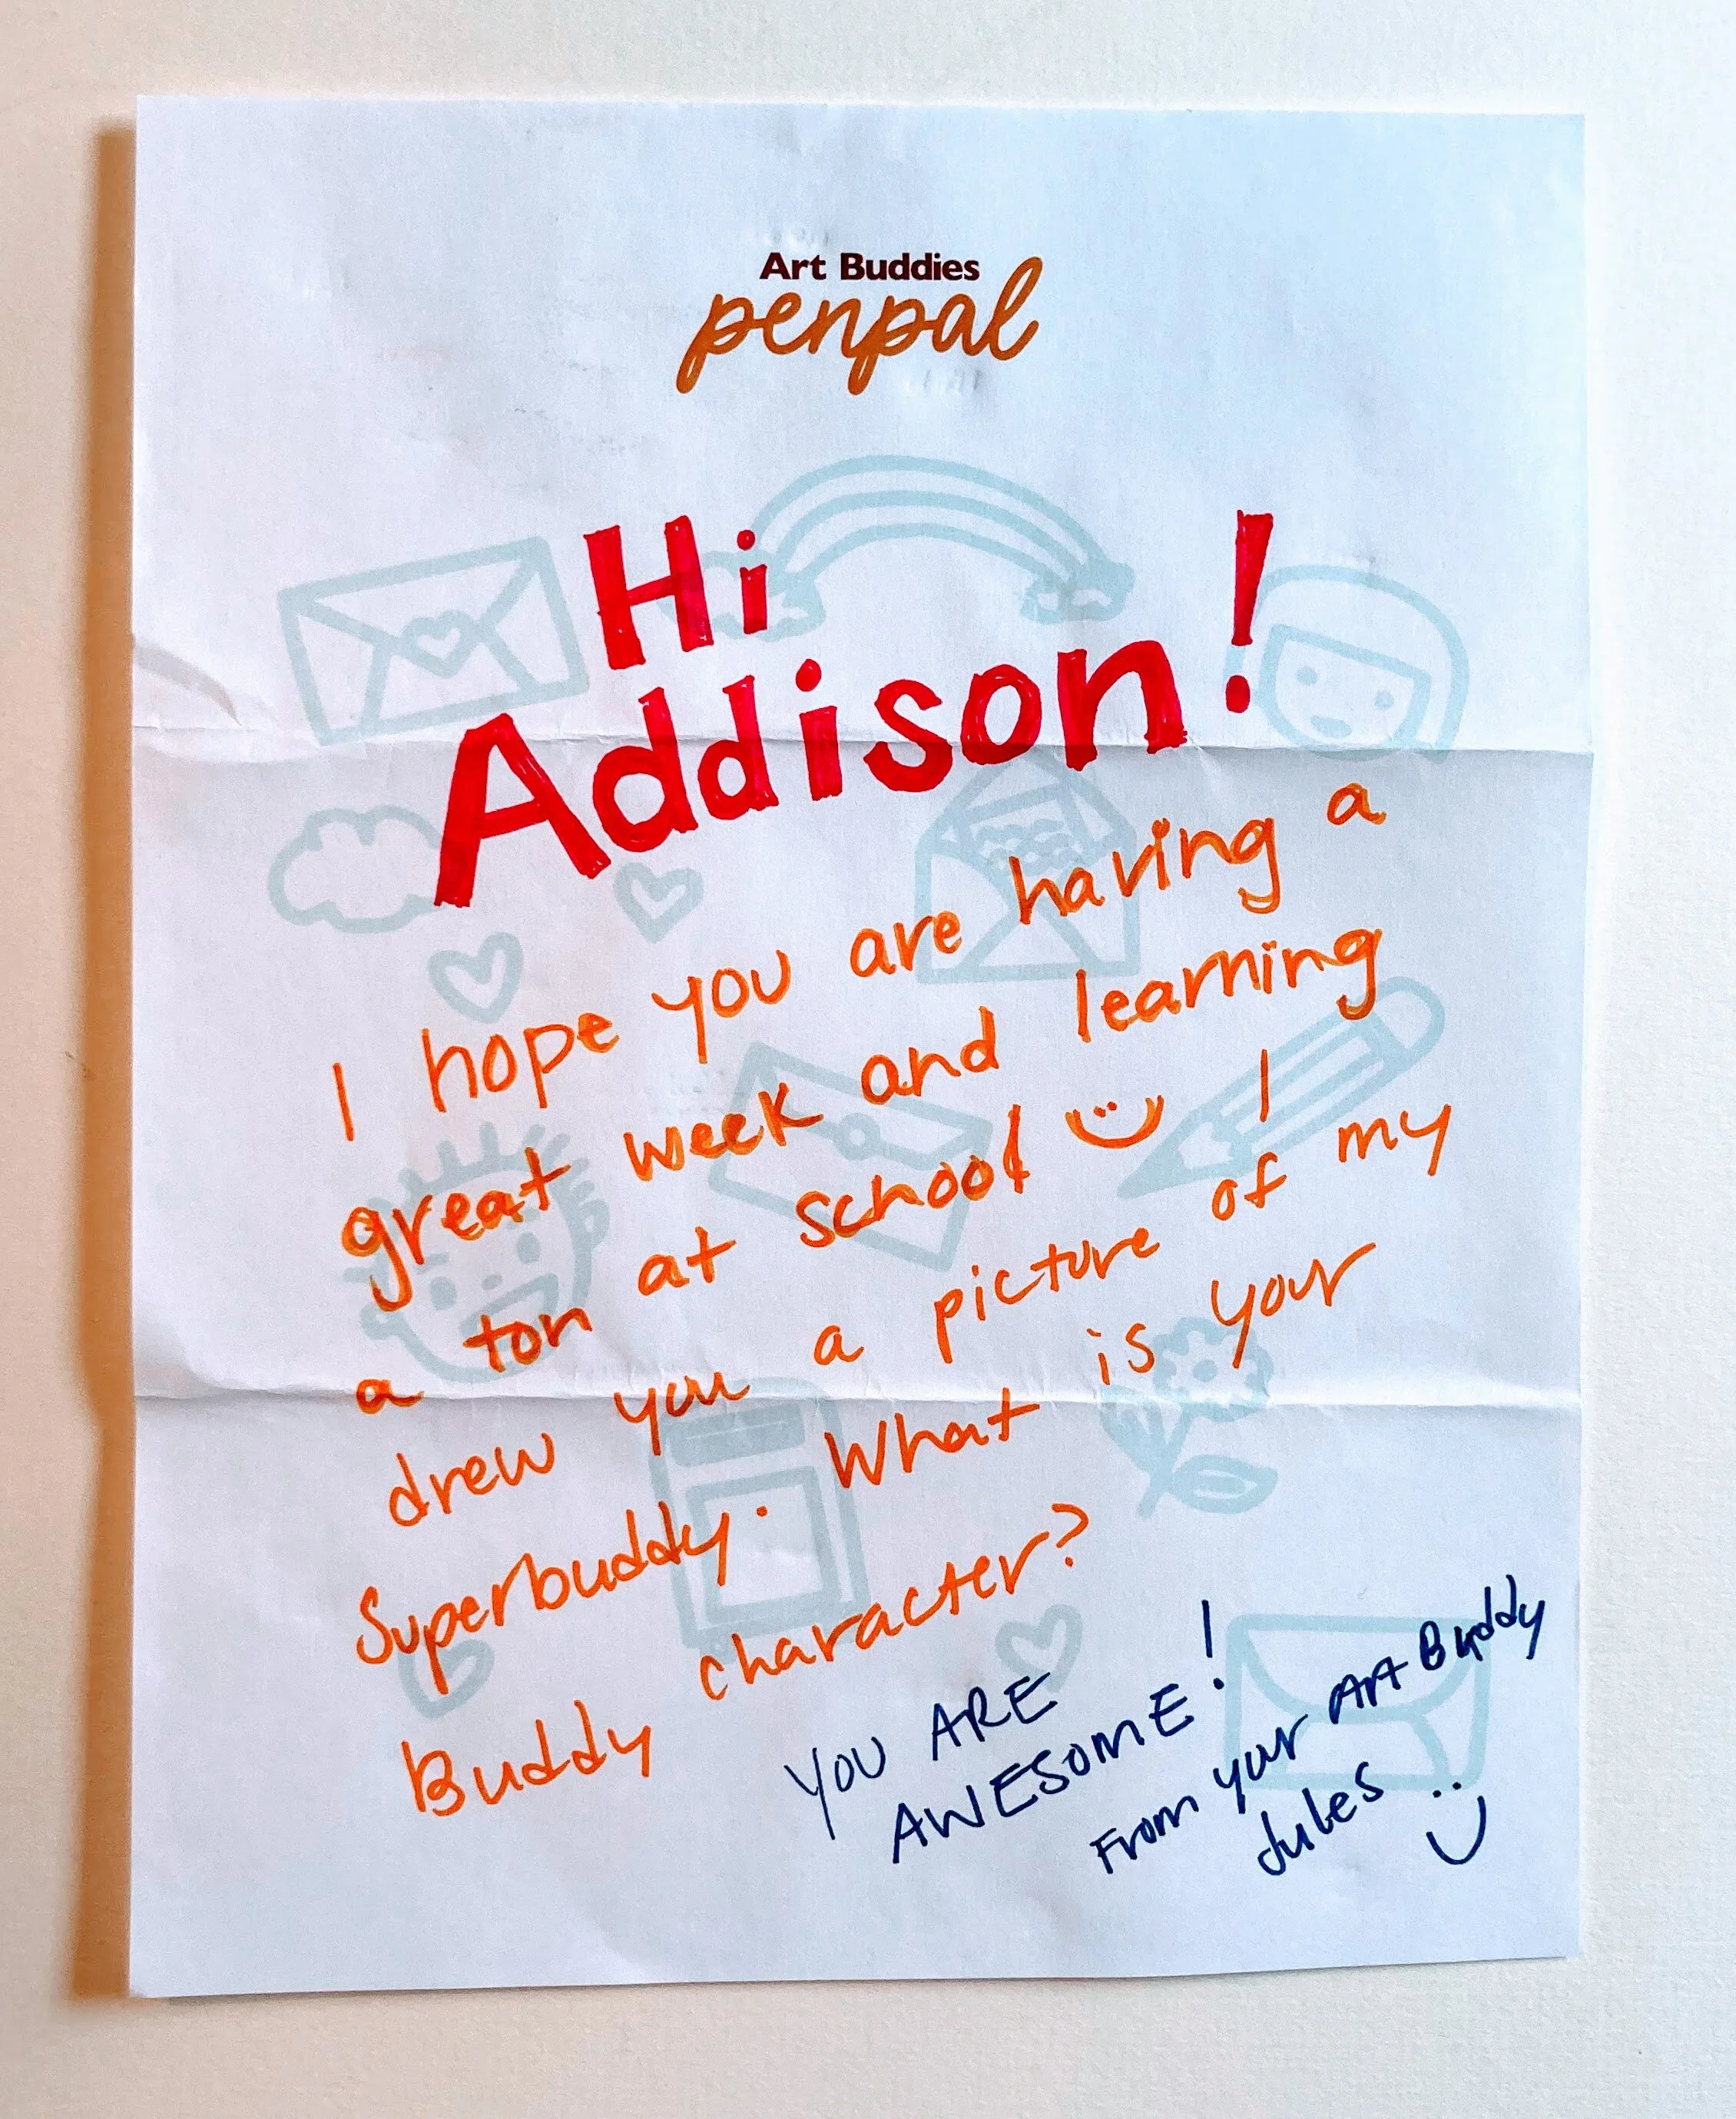 Art Buddies
penpal
Hi
Addison!
I hope you are having a
great week and learning
a ton at school I
drew you a picture of my
Superbuddy. What is your
Buddy character?
YOU ARE
AWESOME!
From your Art Buddy
Jules